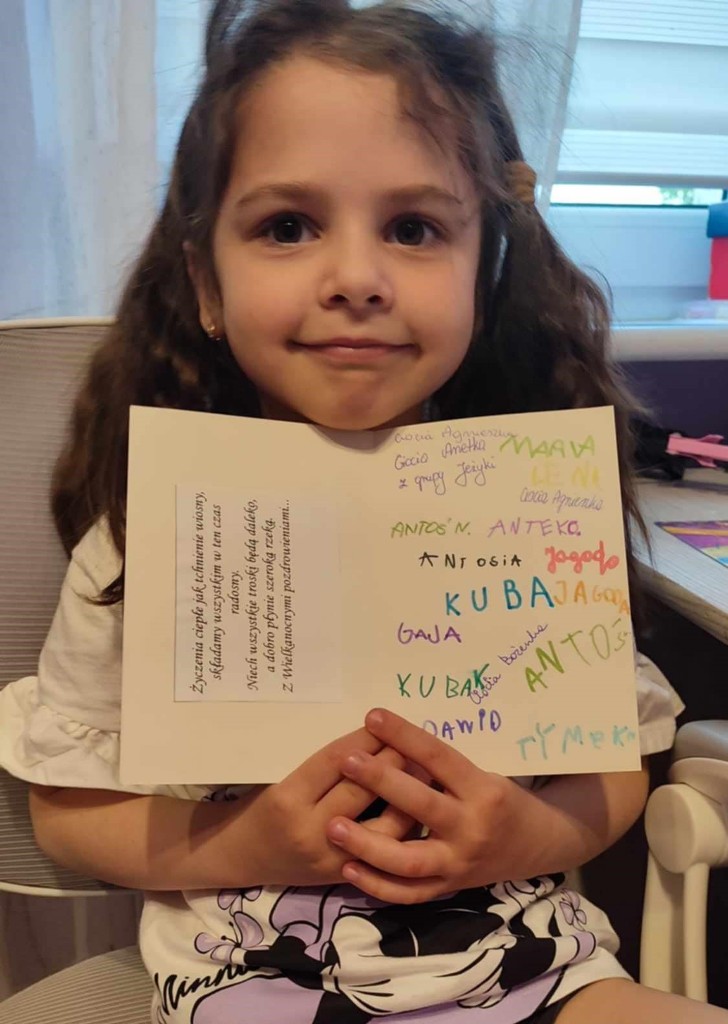 Życzenia ciepłe jak tchnienie wiosny,
składamy wszystkim w ten czas
radosny.
Niech wszystkie troski będą daleko,
a dobro płynie szeroką rzeką.
Z Wielkanocnymi pozdrowieniami...
Ciocia Agnieszka
Ciocia Anetka
z grupy Jeżyki
MARIA
LENI
Ciocia Agnieszka
ANTOŚ N.
ANTEK
ANTOSIA
Jagoda
KUBA
JAGODA
GAJA
Ciocia Bożenka
ANTOŚ
KUBA K
DAWID
TYMEK
Minnie